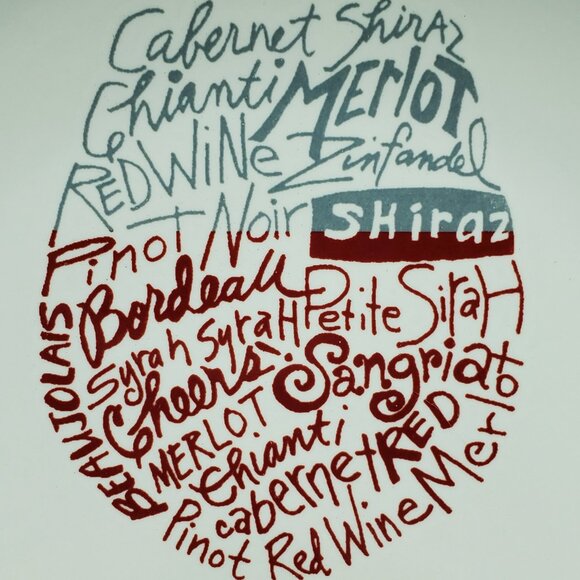 Cabernet Shiraz
Chianti Merlot
Red Wine Zinfandel
Pinot Noir Shiraz
Bordeau Petite Sirah
BEAUJOLAIS
Syrah Syrah
Cheers! Sangria
MERLOT
Chianti
cabernet RED
Pinot Red Wine Merlot